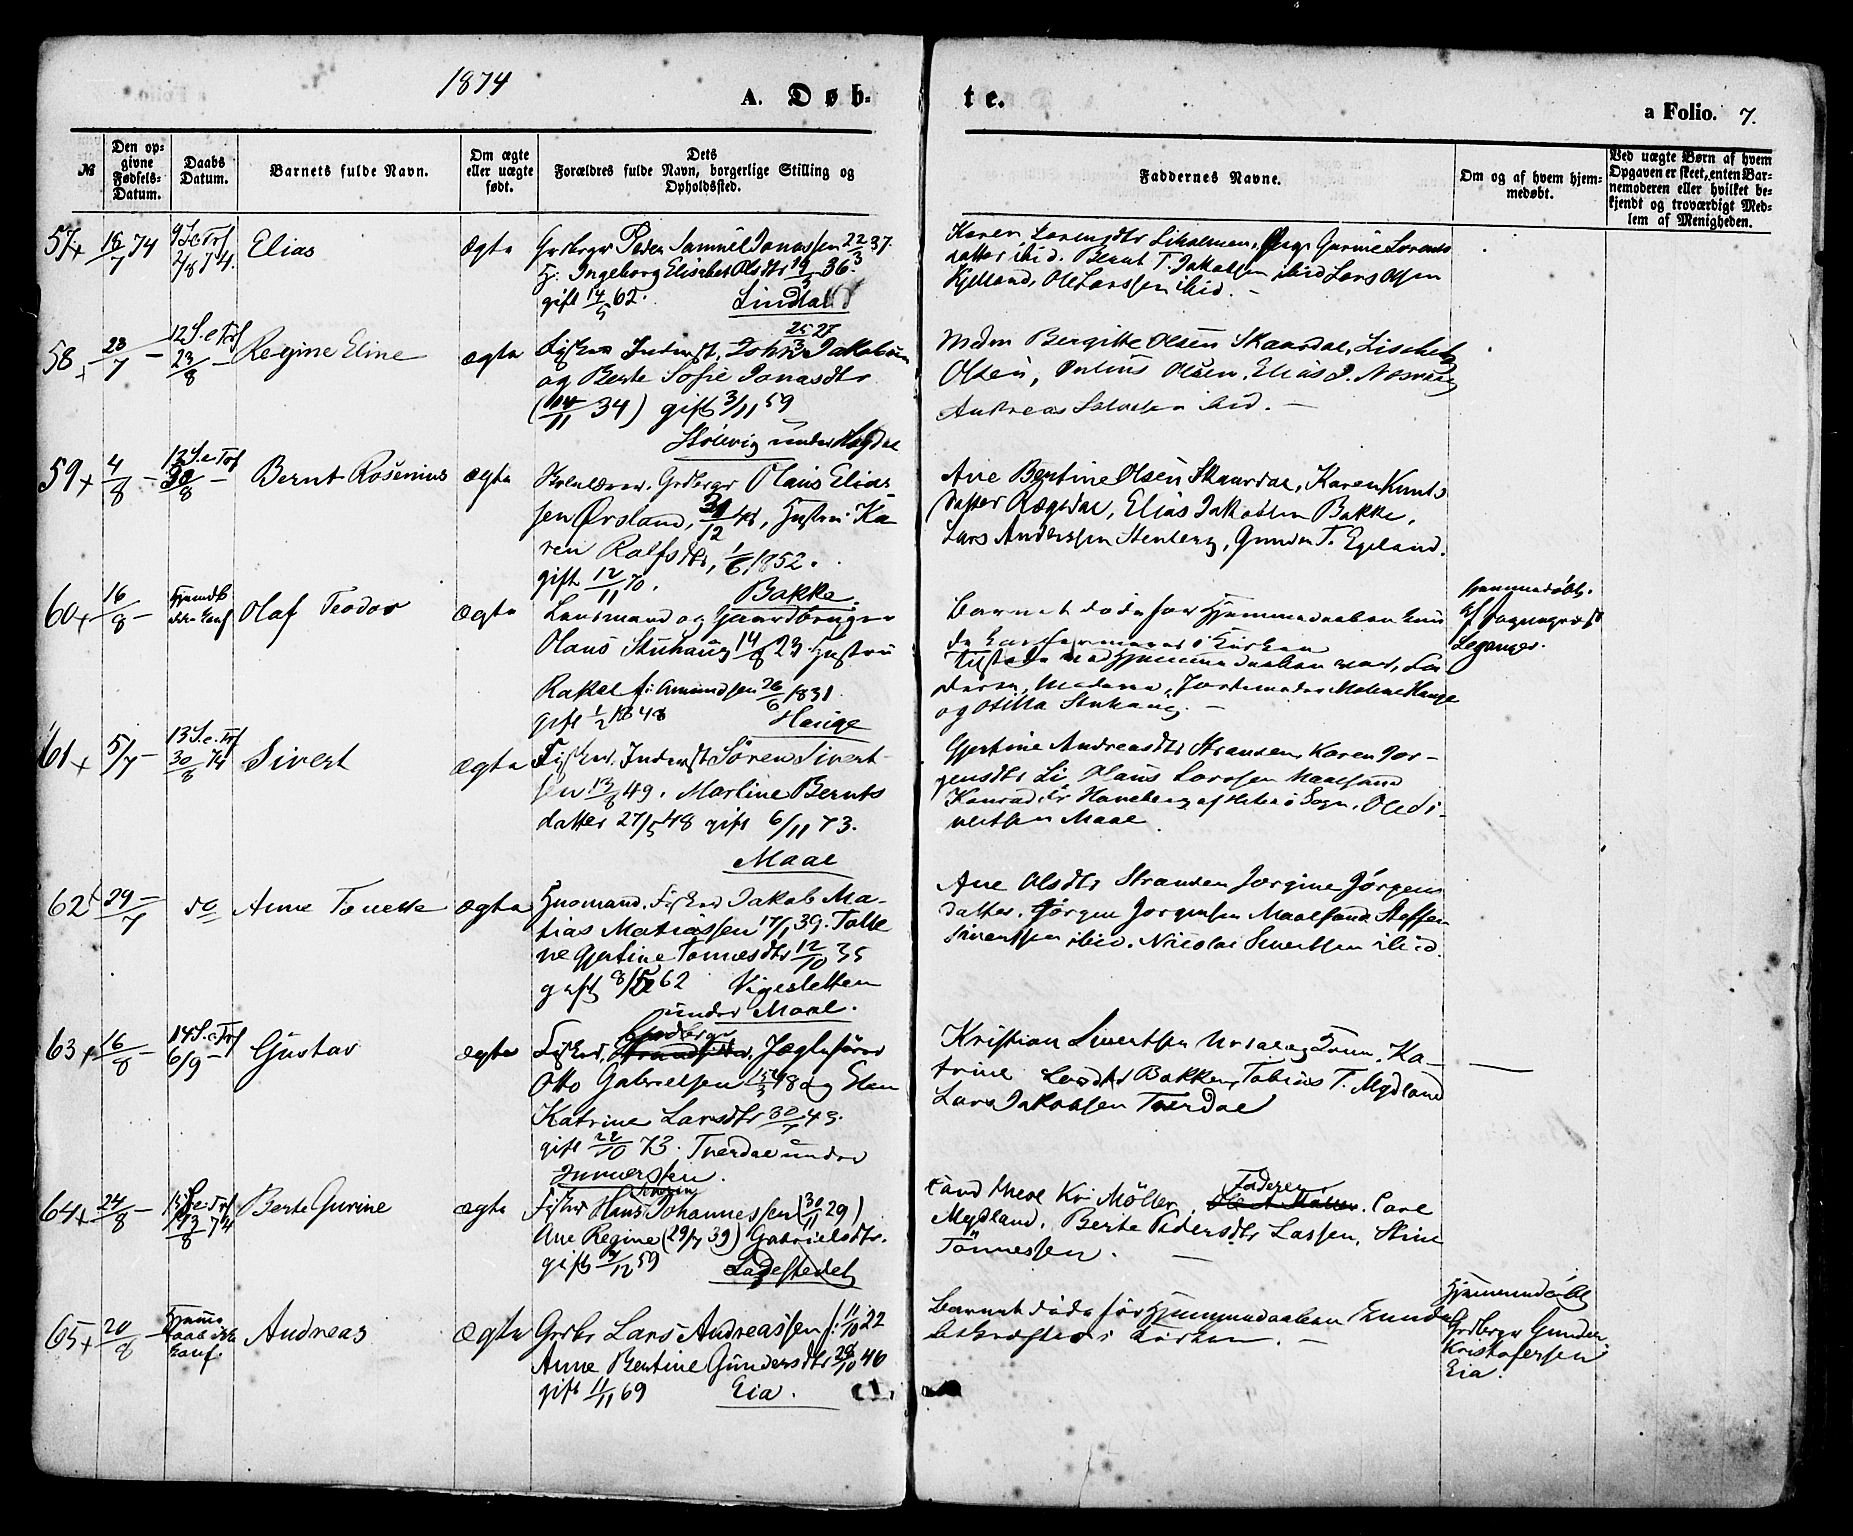 1874
A. Døb-
te.
a Folio. 7.
№
Den op-
givne
Fødsels-
Datum.
Daabs
Datum.
Barnets fulde Navn.
Om ægte
eller uægte
født.
Dets
Forældres fulde Navn, borgerlige Stilling og
Opholdssted.
Faddernes Navne.
Om og af hvem hjem-
medøbt.
Ved uægte Børn af hvem
Opgaven er skeet, enten Bar-
nemoderen eller hvilket be-
kjendt og troværdigt Med-
lem af Menigheden.
57 16/7 74
9 S. e. Trf
2/8 74.
Elias
ægte
Grdbrgr Peder Samuel Jonassen 22/3 37.
H: Ingeborg Elisebet Olsdtr 19/3 36.
gift 14/5 62. Lindland
Karen Larensdtr Liholmen, Gurine Lorents
datter ibid. Bernt T. Jakobsen ibid Lars Olsen
Kjelland, Ole Larssen ibid.
58 28/7 —
12 S. e Trf
23/8 —
Regine Eline
ægte
25/3 27
Fisker Inderst, John Jakobsen
og Berte Sofie Jonasdtr
(14/11 34) gift 3/11 59
Stølevig under Løgdal
Madm Bergitte Olsen Skaardal, Lisebet
Olsen, Julius Olsen, Elias J. Nesvaag
Andreas Salvesen ibid. —
59 4/8 —
12 S. e Trf
30/8 —
Bernt Rosenius
ægte
Skolelærer, Grdbrgr Olaus Elias-
sen Ørsland, 31/12 48, Hustru Ka-
ren Rolfsdtr, 1/6 1852.
gift 12/11 70. Bakke.
Ane Bertine Olsen Skaardal, Karen Knuts
datter Rægedal, Elias Jakobsen Bakke,
Lars Anderssen Stenberg, Gunder T. Egeland.
60 16/8 —
Hjemdb
ikke Konf
Olaf Teodor
ægte
Lensmand og Gaardbruger
Olaus Stuhaug 14/8 23 Hustru
Rakel f: Amundsen 26/6 1831.
gift 1/2 1848 Hauge
Barnet døde før Hjemmedaaben kun
de konfirmeres i Kirken
Tilstede ved Hjemmedaaben var, Fa
deren, Moderen, Jordemoder Malene Hauge
og Otilia Stuhaug. —
Hjemmedøbt
af Sognepræst
Leganger.
61 5/7 —
13 S. e. Trf
30/8 74
Sivert
ægte
Fisker, Inderst Søren Sivert-
sen 13/8 49. Martine Bernts
datter 27/5 48 gift 6/11 73.
Maal
Gjertine Andreasdtr Stranden, Karen Jør-
gensdtr Li Olaus Larssen Maalsand
Konrad Haneberg af Heber i Sogn, Ole Si-
vertsen Maal
62 29/7 —
do
Anne Tonette
ægte
Husmand, Fisker Jakob Ma-
tias Matiassen 17/1 39. Talle
ne Gjertine Tønnesdtr 12/10 35
gift 8/5 62 Vigesletten
under Maal.
Ane Olsdtr Stranden Jørgine Jørgens
datter. Jørgen Jørgensen Maalsand Steffen
Sivertsen ibid. Nicolai Sivertsen ibid.
63 16/8 —
14 S. e Trf
6/9 —
Gustav
ægte
Grdbrgr
Fisker, Strandsidder, Jægtefører
Otto Gabrielsen 15/3 48 og Elen
Katrine Larsdtr 30/7 49.
gift 22/10 73. Tverdal under
Immerstein.
Kristian Sivertsen Urdal og Ka-
trine Larsdtr Bakken, Tobias T. Mydland
Lars Jakobsen Tverdal
64 24/8 —
15 S. e. Trf
13/8 74
Berte Gurine
ægte
Fisker Hans Johannessen (30/11 29)
Ane Regine (29/7 39) Gabrielsdtr.
gift 2/12 59 Ladestedet
Cand theol Kr. Møller, Faderen Ole A. Møller. Carl
Mydland. Berte Pedersdtr Lassen, Stine
Tønnessen. —
65 20/8 —
Hjemme
daab ikke
Konf.
Andreas
Ægte
Grdbr Lars Andreassen f: 11/10 22
Anne Bertine Gundersdtr 28/10 46
gift 11/11 69 Eia.
Barnet døde før Hjemmedaaben kunde
bekræftes i Kirken. —
Hjemmedøbt
Grdbrgr Gunder
Kristofersen
Eia.